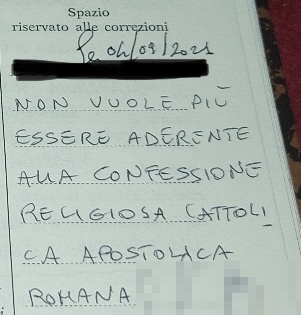 Spazio
riservato alle correzioni
04/09/2021
NON VUOLE PIÙ
ESSERE ADERENTE
ALLA CONFESSIONE
RELIGIOSA CATTOLI
CA APOSTOLICA
ROMANA